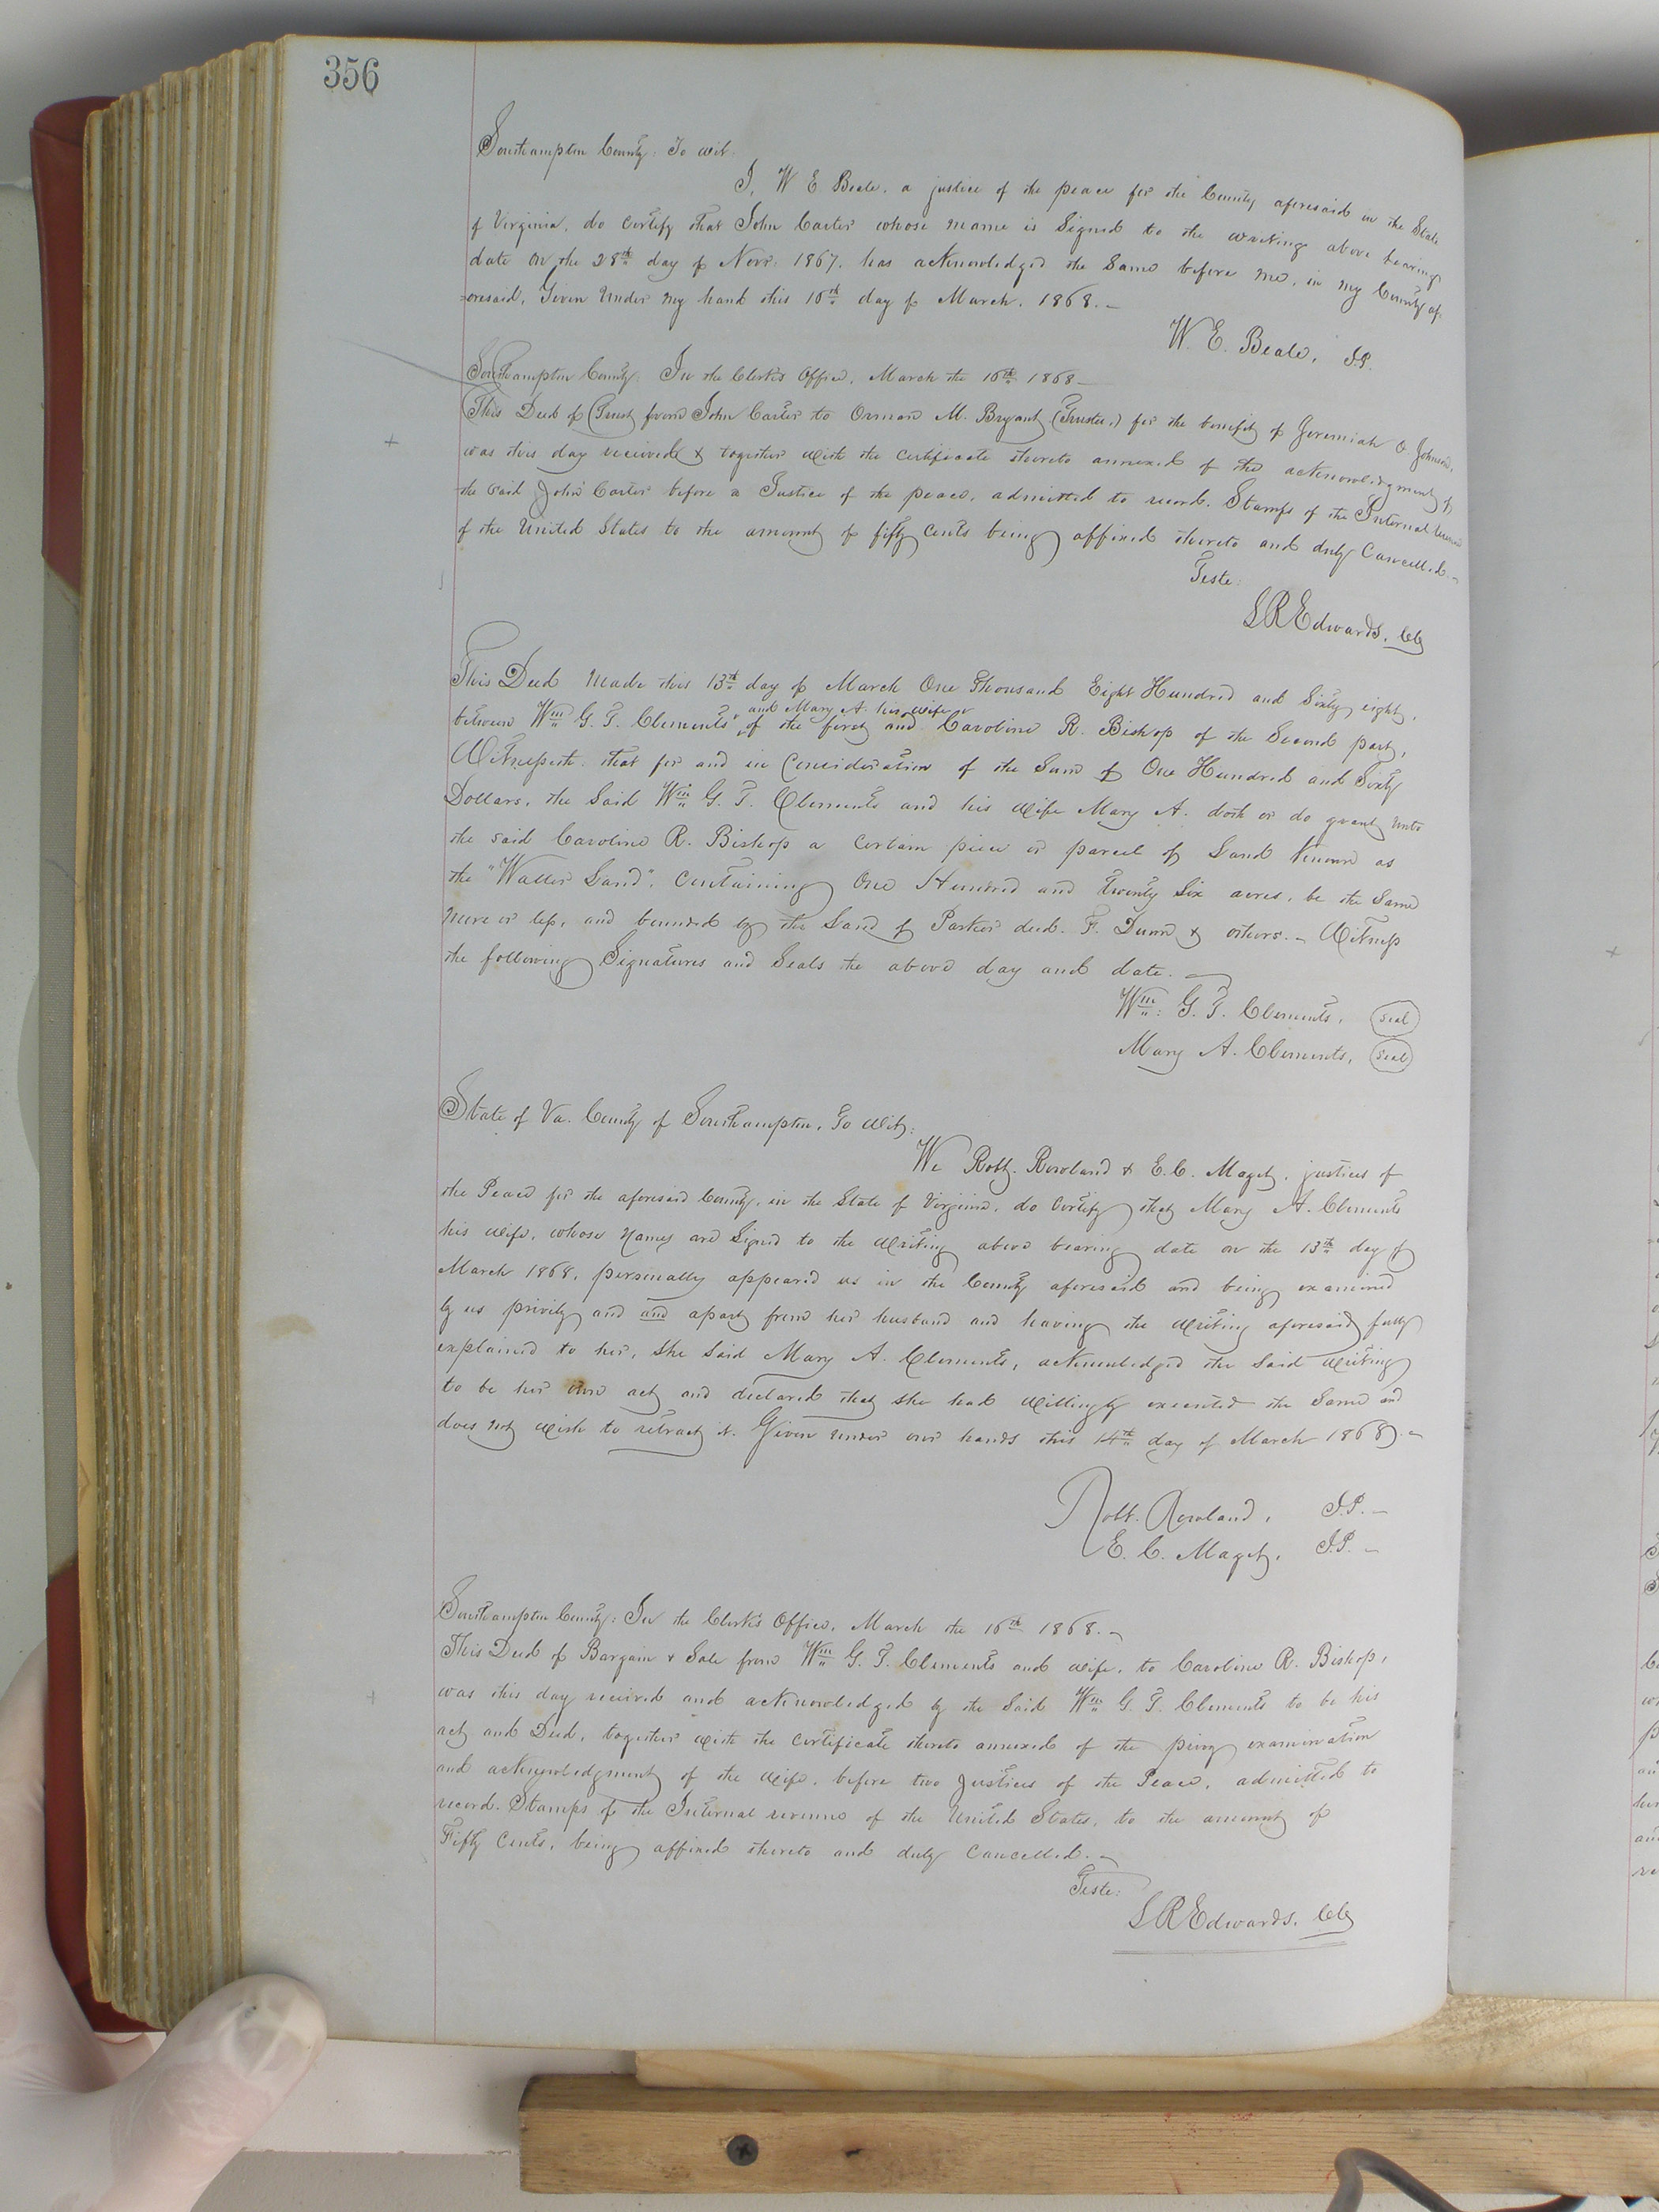 356
Southampton County: To wit.
I, W E Beale, a justice of the peace for the County aforesaid in the State
of Virginia, do certify that John Carter whose name is signed to the writing above bearing
date on the 28th day of Novr. 1867, has acknowledged the same before me, in my County af-
-oresaid, Given under my hand this 16th day of March, 1868.—
W. E. Beale, J.P.
Southampton County: In the Clerk's Office, March the 16th 1868—
This Deed of Trust from John Carter to Orman M. Bryant (Trustee,) for the benefit of Jeremiah O Johnson,
was this day received & together with the certificate thereto annexed of the acknowledgment of
the said John Carter before a Justice of the peace, admitted to record. Stamps of the Internal
of the United States to the amount of fifty cents being affixed thereto and duly Cancelled.—
Teste:
L R Edwards, Clk
This Deed made this 13th day of March One Thousand Eight Hundred and Sixty eight,
and Mary A. his wife
between Wm G. T. Clements of the first and Caroline R. Bishop of the second part,
Witnesseth: that for and in consideration of the sum of One Hundred and Sixty
Dollars, the said Wm G. T. Clements and his wife Mary A. doth or do grant unto
the said Caroline R. Bishop a certain piece or parcel of Land known as
the "Waller Land", containing One Hundred and twenty six acres, be the same
more or less, and bounded by the Land of Parker decd. F. Dunn & others.— Witness
the following Signatures and Seals the above day and date.—
Wm: G. T. Clements, seal
Mary A. Clements, seal
State of Va. County of Southampton, To wit:
We Robt. Rowland & E. C. Maget, justices of
the Peace for the aforesaid County, in the State of Virginia, do certify that Mary A. Clements
his wife, whose names are signed to the writing above bearing date on the 13th day of
March 1868, personally appeared us in the County aforesaid and being examined
by us privily and and apart from her husband and having the writing aforesaid fully
explained to her, she said Mary A. Clements, acknowledged the said writing
to be her own act and declared that she had willingly executed the same and
does not wish to retract it. Given under our hands this 14th day of March 1868.—
Robt. Rowland, J.P.—
E. C. Maget, J.P.—
Southampton County: In the Clerk's Office, March the 16th 1868.—
This Deed of Bargain & Sale from Wm G. T. Clements and wife, to Caroline R. Bishop,
was this day received and acknowledged by the said Wm G. T. Clements to be his
act and Deed, together with the certificate thereto annexed of the privy examination
and acknowledgment of the wife, before two Justices of the Peace, admitted to
record. Stamps of the Internal revenue of the United States, to the amount of
Fifty Cents, being affixed thereto and duly Cancelled.—
Teste:
L R Edwards, Clk